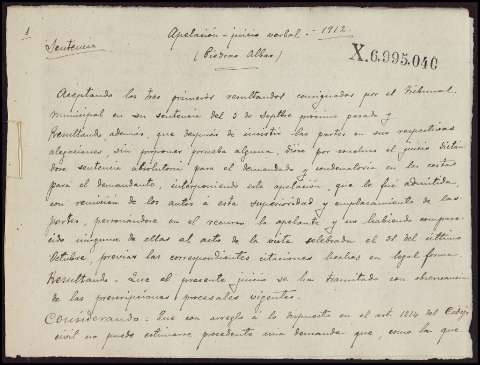 1
Apelación - juicio verbal - 1912
Sentencia
(Piedras Albas)
X.6.995.040
Aceptando los tres primeros resultandos consignados por el Tribunal
municipal en su sentencia del 3 de Septbre proximo pasado y
Resultando además, que después de insistir las partes en sus respectivas
alegaciones, sin proponer prueba alguna, dióse por concluso el juicio dictan
dose sentencia absolutoria para el demandado y condenatoria en las costas
para el demandante, interponiendo este apelación, que le fué admitida,
con remisión de los autos a esta superioridad y emplazamiento de las
partes, personandose en el recurso la apelante y no habiendo compare
cido ninguna de ellas al acto de la vista celebrada el 31 del último
Octubre, previas las correspondientes citaciones hechas en legal forma.
Resultando. Que el presente juicio se ha tramitado con observancia
de las prescripciones procesales vigentes.
Considerando: Que con arreglo á lo dispuesto en el art. 1214 del Código
civil no puede estimarse procedente una demanda que, como la que